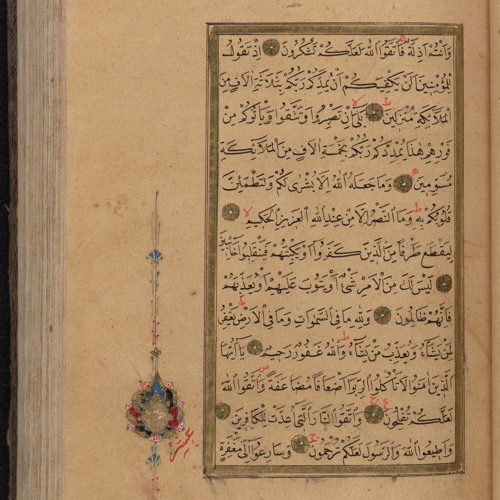 وَأَنْتُمْ أَذِلَّةٌ فَاتَّقُوا اللَّهَ لَعَلَّكُمْ تَشْكُرُونَ إِذْ تَقُولُ
لِلْمُؤْمِنِينَ أَلَنْ يَكْفِيَكُمْ أَنْ يُمِدَّكُمْ رَبُّكُمْ بِثَلَاثَةِ آلَافٍ مِنَ
الْمَلَائِكَةِ مُنْزَلِينَ بَلَى إِنْ تَصْبِرُوا وَتَتَّقُوا وَيَأْتُوكُمْ مِنْ
فَوْرِهِمْ هَذَا يُمْدِدْكُمْ رَبُّكُمْ بِخَمْسَةِ آلَافٍ مِنَ الْمَلَائِكَةِ
مُسَوِّمِينَ وَمَا جَعَلَهُ اللَّهُ إِلَّا بُشْرَى لَكُمْ وَلِتَطْمَئِنَّ
قُلُوبُكُمْ بِهِ وَمَا النَّصْرُ إِلَّا مِنْ عِنْدِ اللَّهِ الْعَزِيزِ الْحَكِيمِ
لِيَقْطَعَ طَرَفًا مِنَ الَّذِينَ كَفَرُوا أَوْ يَكْبِتَهُمْ فَيَنْقَلِبُوا خَائِبِينَ
لَيْسَ لَكَ مِنَ الْأَمْرِ شَيْءٌ أَوْ يَتُوبَ عَلَيْهِمْ أَوْ يُعَذِّبَهُمْ
فَإِنَّهُمْ ظَالِمُونَ وَلِلَّهِ مَا فِي السَّمَوَاتِ وَمَا فِي الْأَرْضِ يَغْفِرُ
لِمَنْ يَشَاءُ وَيُعَذِّبُ مَنْ يَشَاءُ وَاللَّهُ غَفُورٌ رَحِيمٌ يَا أَيُّهَا
الَّذِينَ آمَنُوا لَا تَأْكُلُوا الرِّبَوا أَضْعَافًا مُضَاعَفَةً وَاتَّقُوا اللَّهَ
لَعَلَّكُمْ تُفْلِحُونَ وَاتَّقُوا النَّارَ الَّتِي أُعِدَّتْ لِلْكَافِرِينَ
وَأَطِيعُوا اللَّهَ وَالرَّسُولَ لَعَلَّكُمْ تُرْحَمُونَ وَسَارِعُوا إِلَى مَغْفِرَةٍ